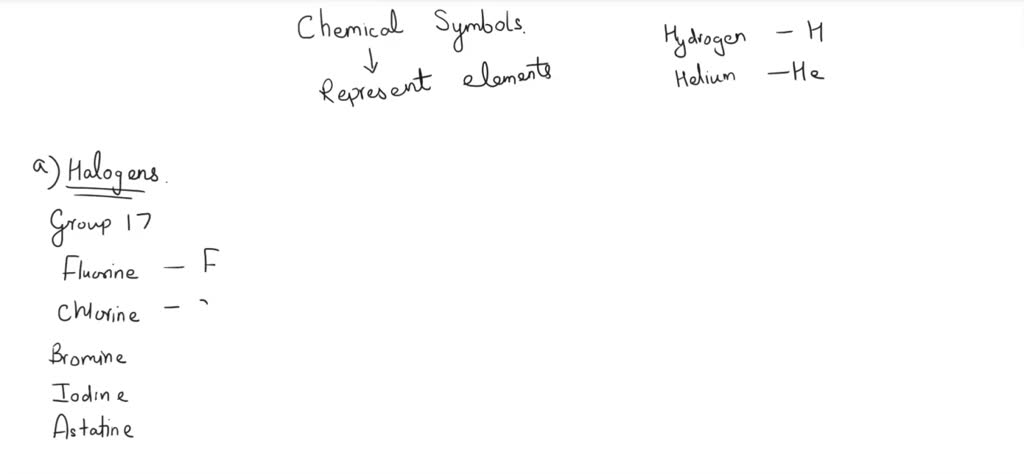 Chemical Symbols.
↓
Represent elements
Hydrogen - H
Helium - He
a) Halogens.
Group 17
Fluorine - F
Chlorine -
Bromine
Iodine
Astatine